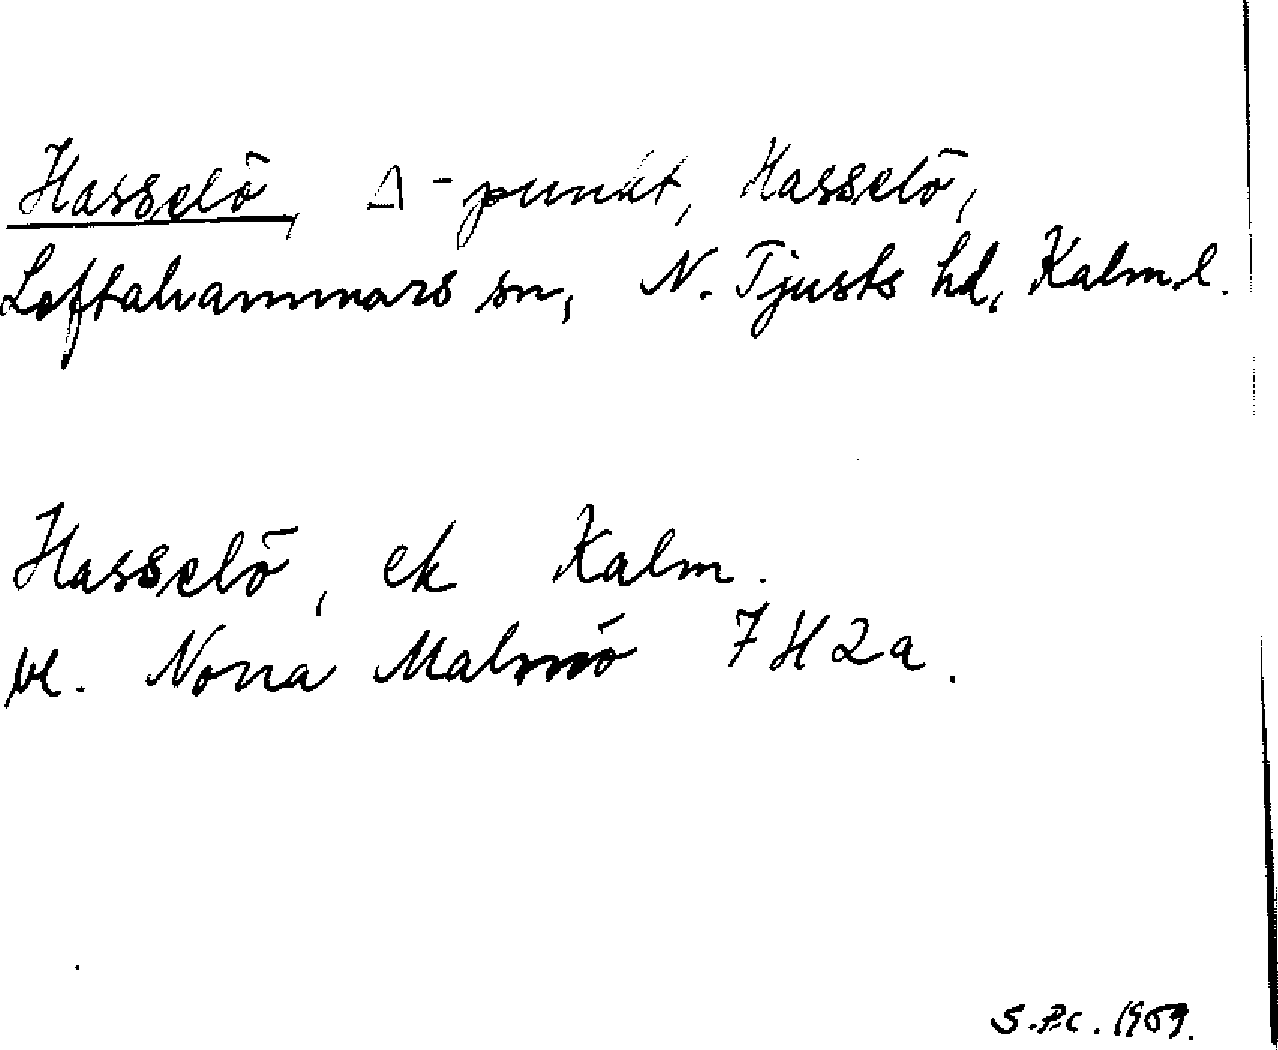 Hasselö, Δ-punkt, Hasselö,
Loftahammars sn, N. Tjusts hd, Kalm.l.
Hasselö, ek Kalm.
bl. Norra Malmö 7H2a.
S.P.C. 1969.